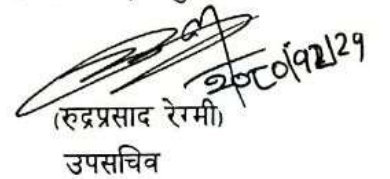 २०८०/१२/29
(रुद्रप्रसाद रेग्मी)
उपसचिव